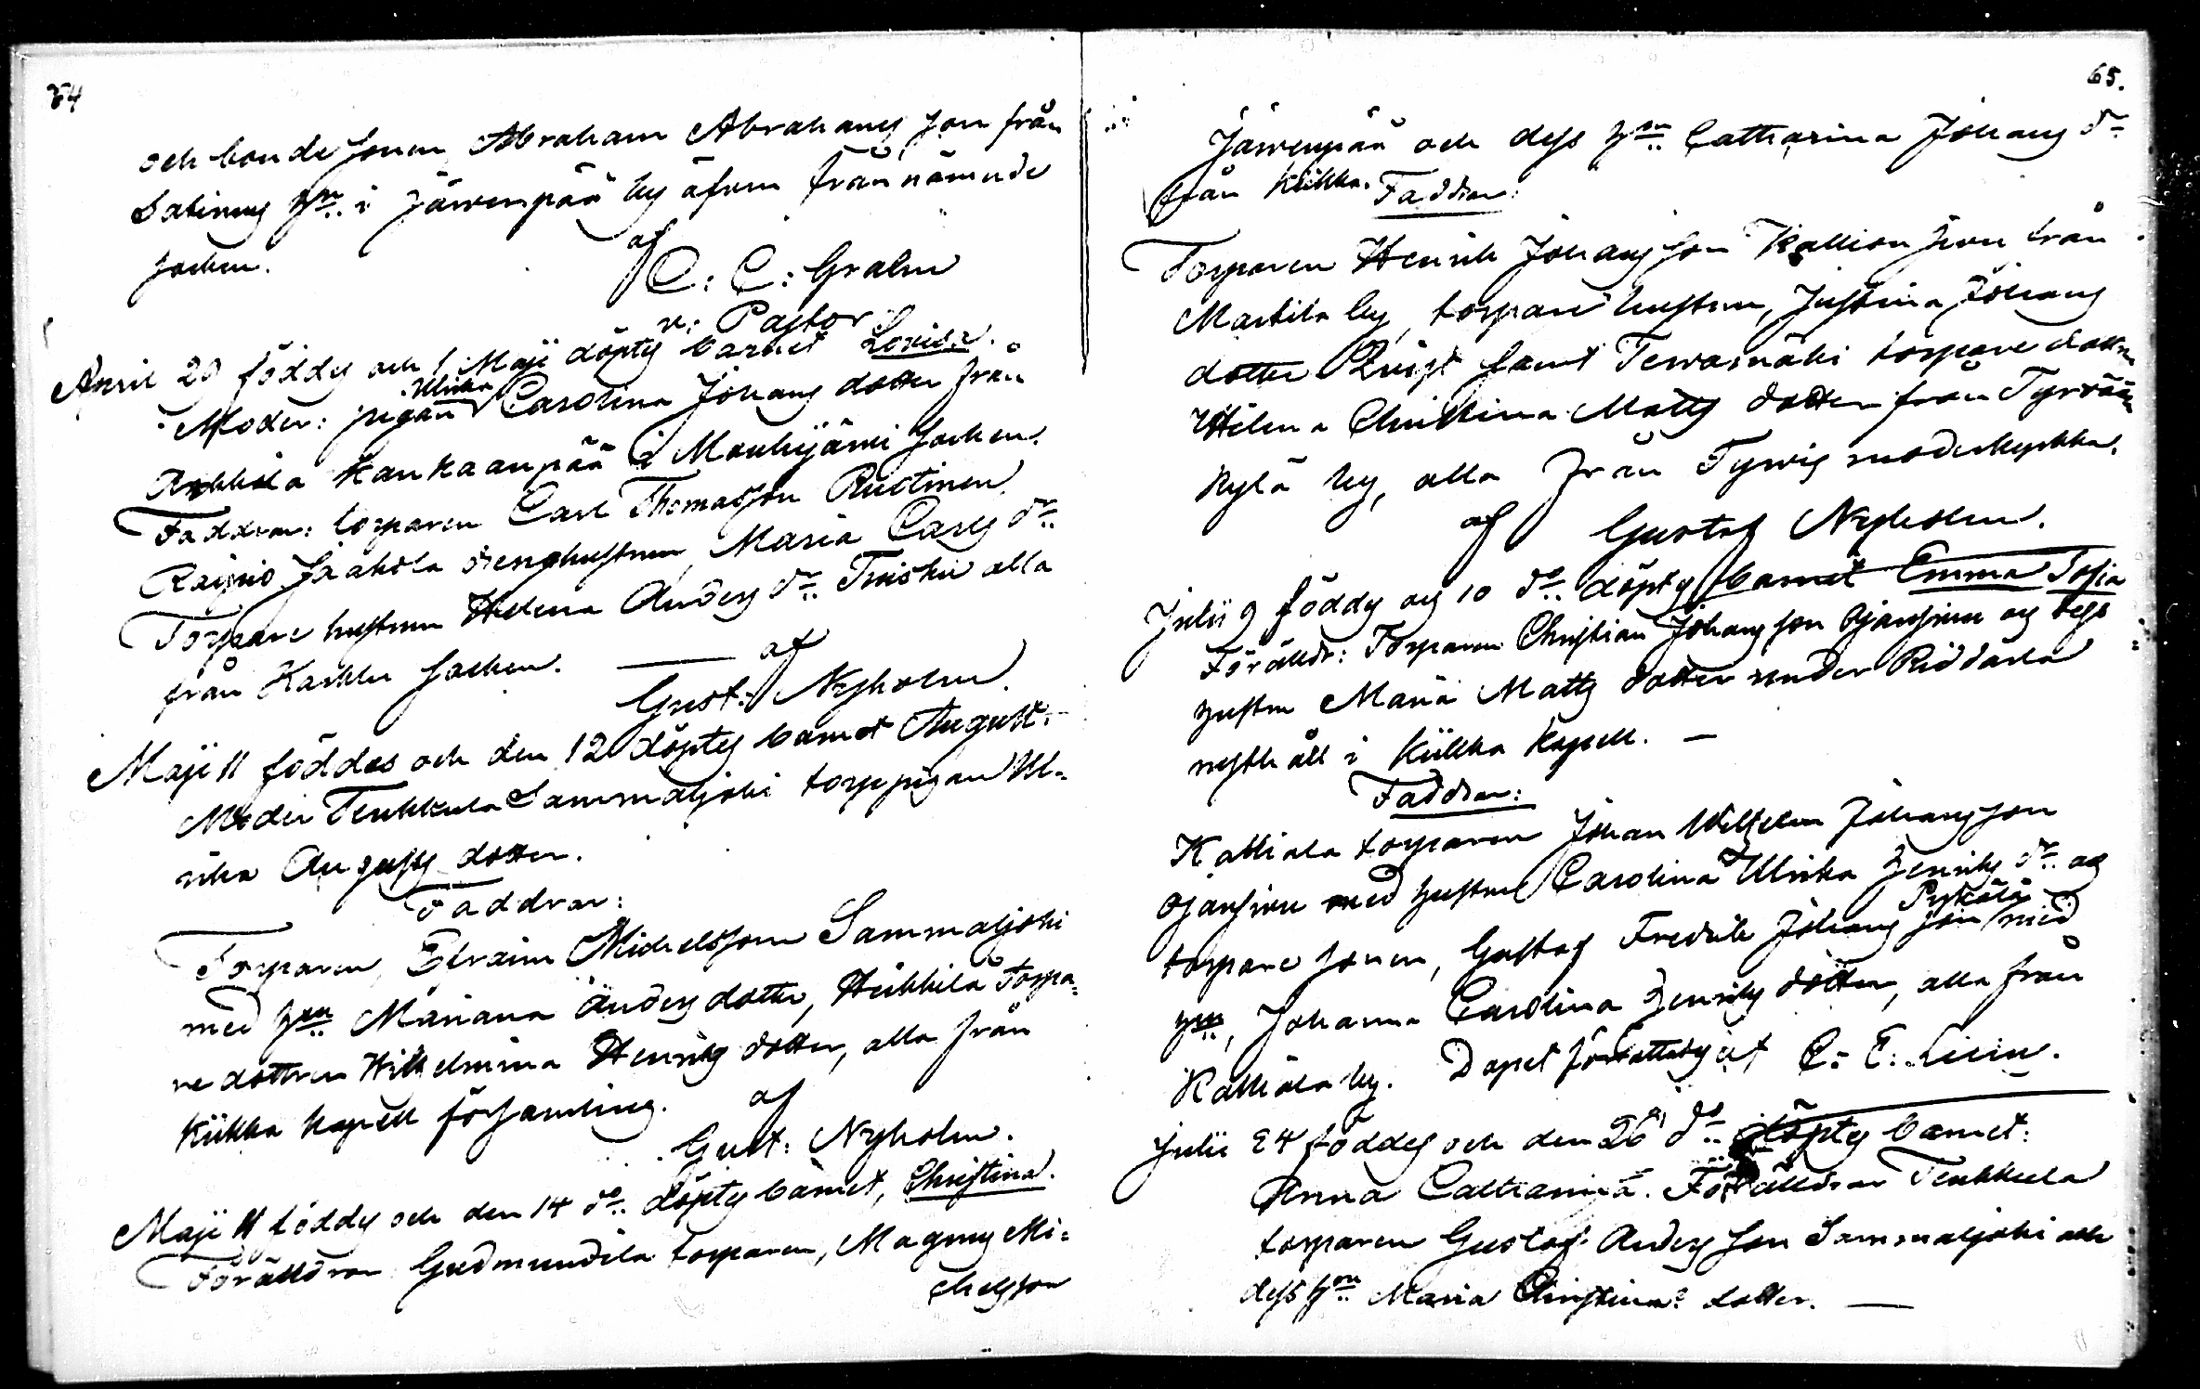 64
och bonde sonen Abraham Abrahams son från
Sabinus hn. i Järvenpää by äfven från nämnde
socken.
af C: C: Grahn
v: Pastor
April 29 föddes och 1 Maji döptes barnet Lovisa.
Moder: pigan Ulrika Carolina Johans dotter från
Kankaanpää i Mouhijärvi Socken.
Faddrar: torparen Carl Thomasson Rustinen,
Raipio Jaakola drenghustrun, Maria Carls dr.
Torpare hustrun Helena Anders dr. alla
från Karkku Socken. af
Gust: Nyholm.
Maji 11 föddes och den 12 döptes barnet August.
Moder Teukkula Sammaljoki torp pigan Ul-
rika Augusts dotter.
Faddrar:
Torparen, Efraim Michelsson Sammaljoki
med hn. Mariana Anders dotter, Heikkilä torpa-
re dottren Wilhelmina Henriks dotter, alla från
Kiikka kapell församling. af
Gust: Nyholm.
Maji 11 föddes och den 14 do. döptes barnet, Christina.
Föräldrar Gudmundila torparen, Magnus Mi-
chelsson
65.
Järvenpää och dess hn. Catharina Johans dr
från Kiikka. Faddrar:
Torparen Henrik Johansson Kallion från
Marttila by, torpare hustrun, Justina Johans
dotter Qvist samt Tervasmäki torpare dottren
Helena Christina Matts dotter från Tyrvään
kylä by, alla från Tyrvis moderkyrka.
af Gustaf Nyholm.
Julii 9 föddes och 10 do. döptes barnet Emma Sofia
Föräldr: Torparen Christian Johansson Ojansivu og dess
hustru Maria Matts dotter under Riddarla
rusthåll i Kiikka kapell. —
Faddrar:
Kalliala torparen Johan Wilhelm Johansson
Ojansivu med hustrun Carolina Ulrika Henriks dr. og
torpare sonen, Gustaf Fredrik Johans son Pykälä med
hn, Johanna Carolina Henriks dotter, alla från
Kalliala by. Dopet förrättadt af C: E: Licin.
Julii 24 föddes och den 26 do. döptes barnet:
Anna Catharina. Föräldrar Teukkula
torparen Gustaf Anders son Sammaljoki och
dess hn. Maria Christina dotter. —